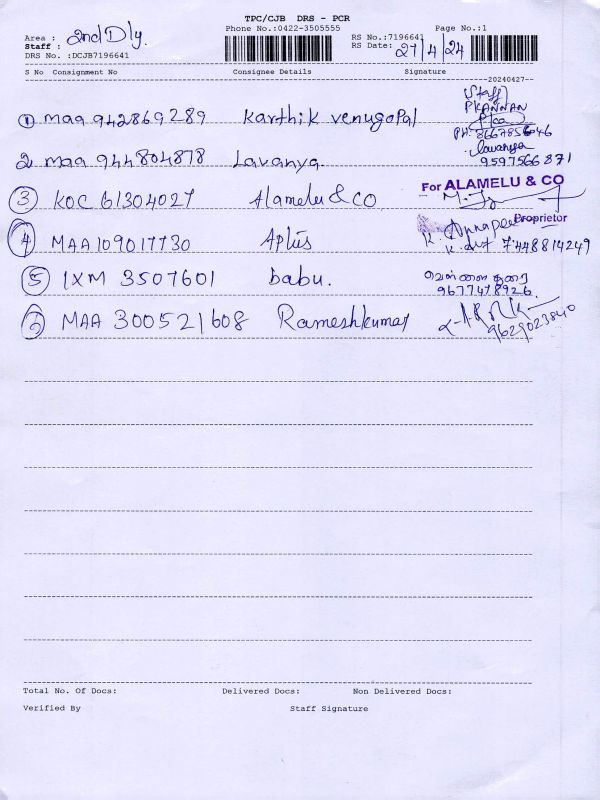 TPC/CJB DRS - PCR
Phone No.:0422-3505555
Page No.:1
Area : 2nd Dly.
RS No.:7196641
Staff :
RS Date: 27/4/24
DRS No. :DCJB7196641
S No Consignment No Consignee Details Signature
20240427
① maa 942869289 Karthik venugopal (Staff) P KANNAN PH: 8667856046
2 maa 944804878 Lavanya. Lavanya 9597566871
③ KOC 61304027 Alamelu & CO For ALAMELU & CO
Proprietor
④ MAA109017730 Aplus 7448814249
⑤ IXM 3507601 babu. 9677478926.
⑥ MAA 300521608 Rameshkumar 9629023840
Total No. Of Docs: Delivered Docs: Non Delivered Docs:
Verified By Staff Signature